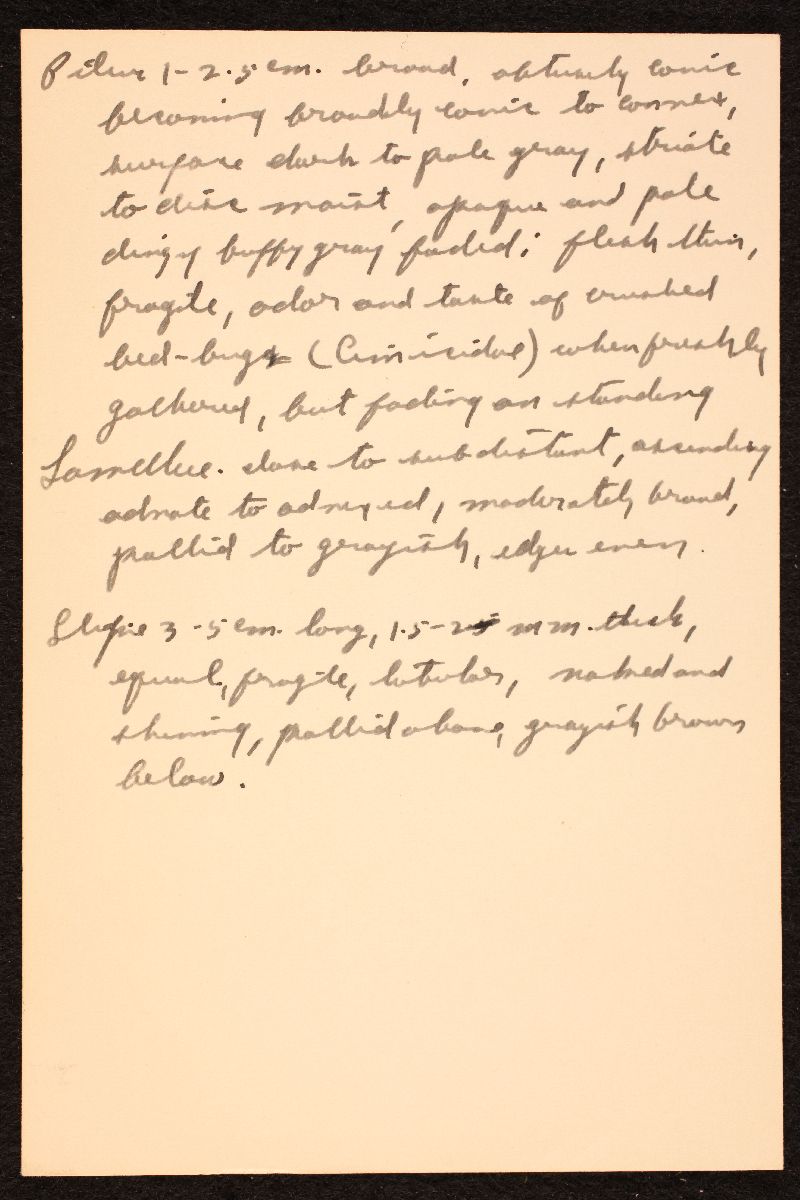 Pileus 1-2.5 cm. broad, obtusely conic
becoming broadly conic to convex,
surface dark to pale gray, striate
to disc moist, opaque and pale
dingy buffy gray faded; flesh thin,
fragile, odor and taste of crushed
bed-bugs (Cimicidae) when freshly
gathered, but fading on standing
Lamellae. close to subdistant, ascending
adnate to adnexed, moderately broad,
pallid to grayish, edges even.
Stipe 3-5 cm. long, 1.5-2 mm. thick,
equal, fragile, tubular, naked and
shining, pallid above, grayish brown
below.